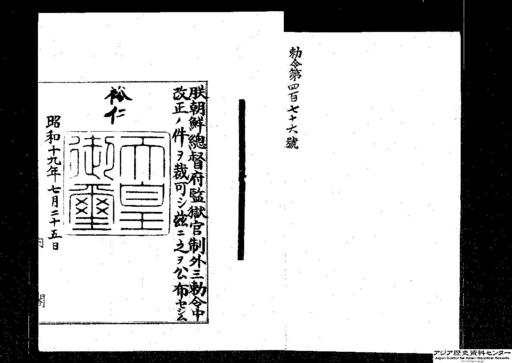 勅令第四百七十六號
朕朝鮮總督府監獄官制外三勅令中
改正ノ件ヲ裁可シ茲ニ之ヲ公布セシム
裕仁
天皇
御璽
昭和十九年七月二十五日
内
閣
アジア歴史資料センター
Japan Center for Asian Historical Records